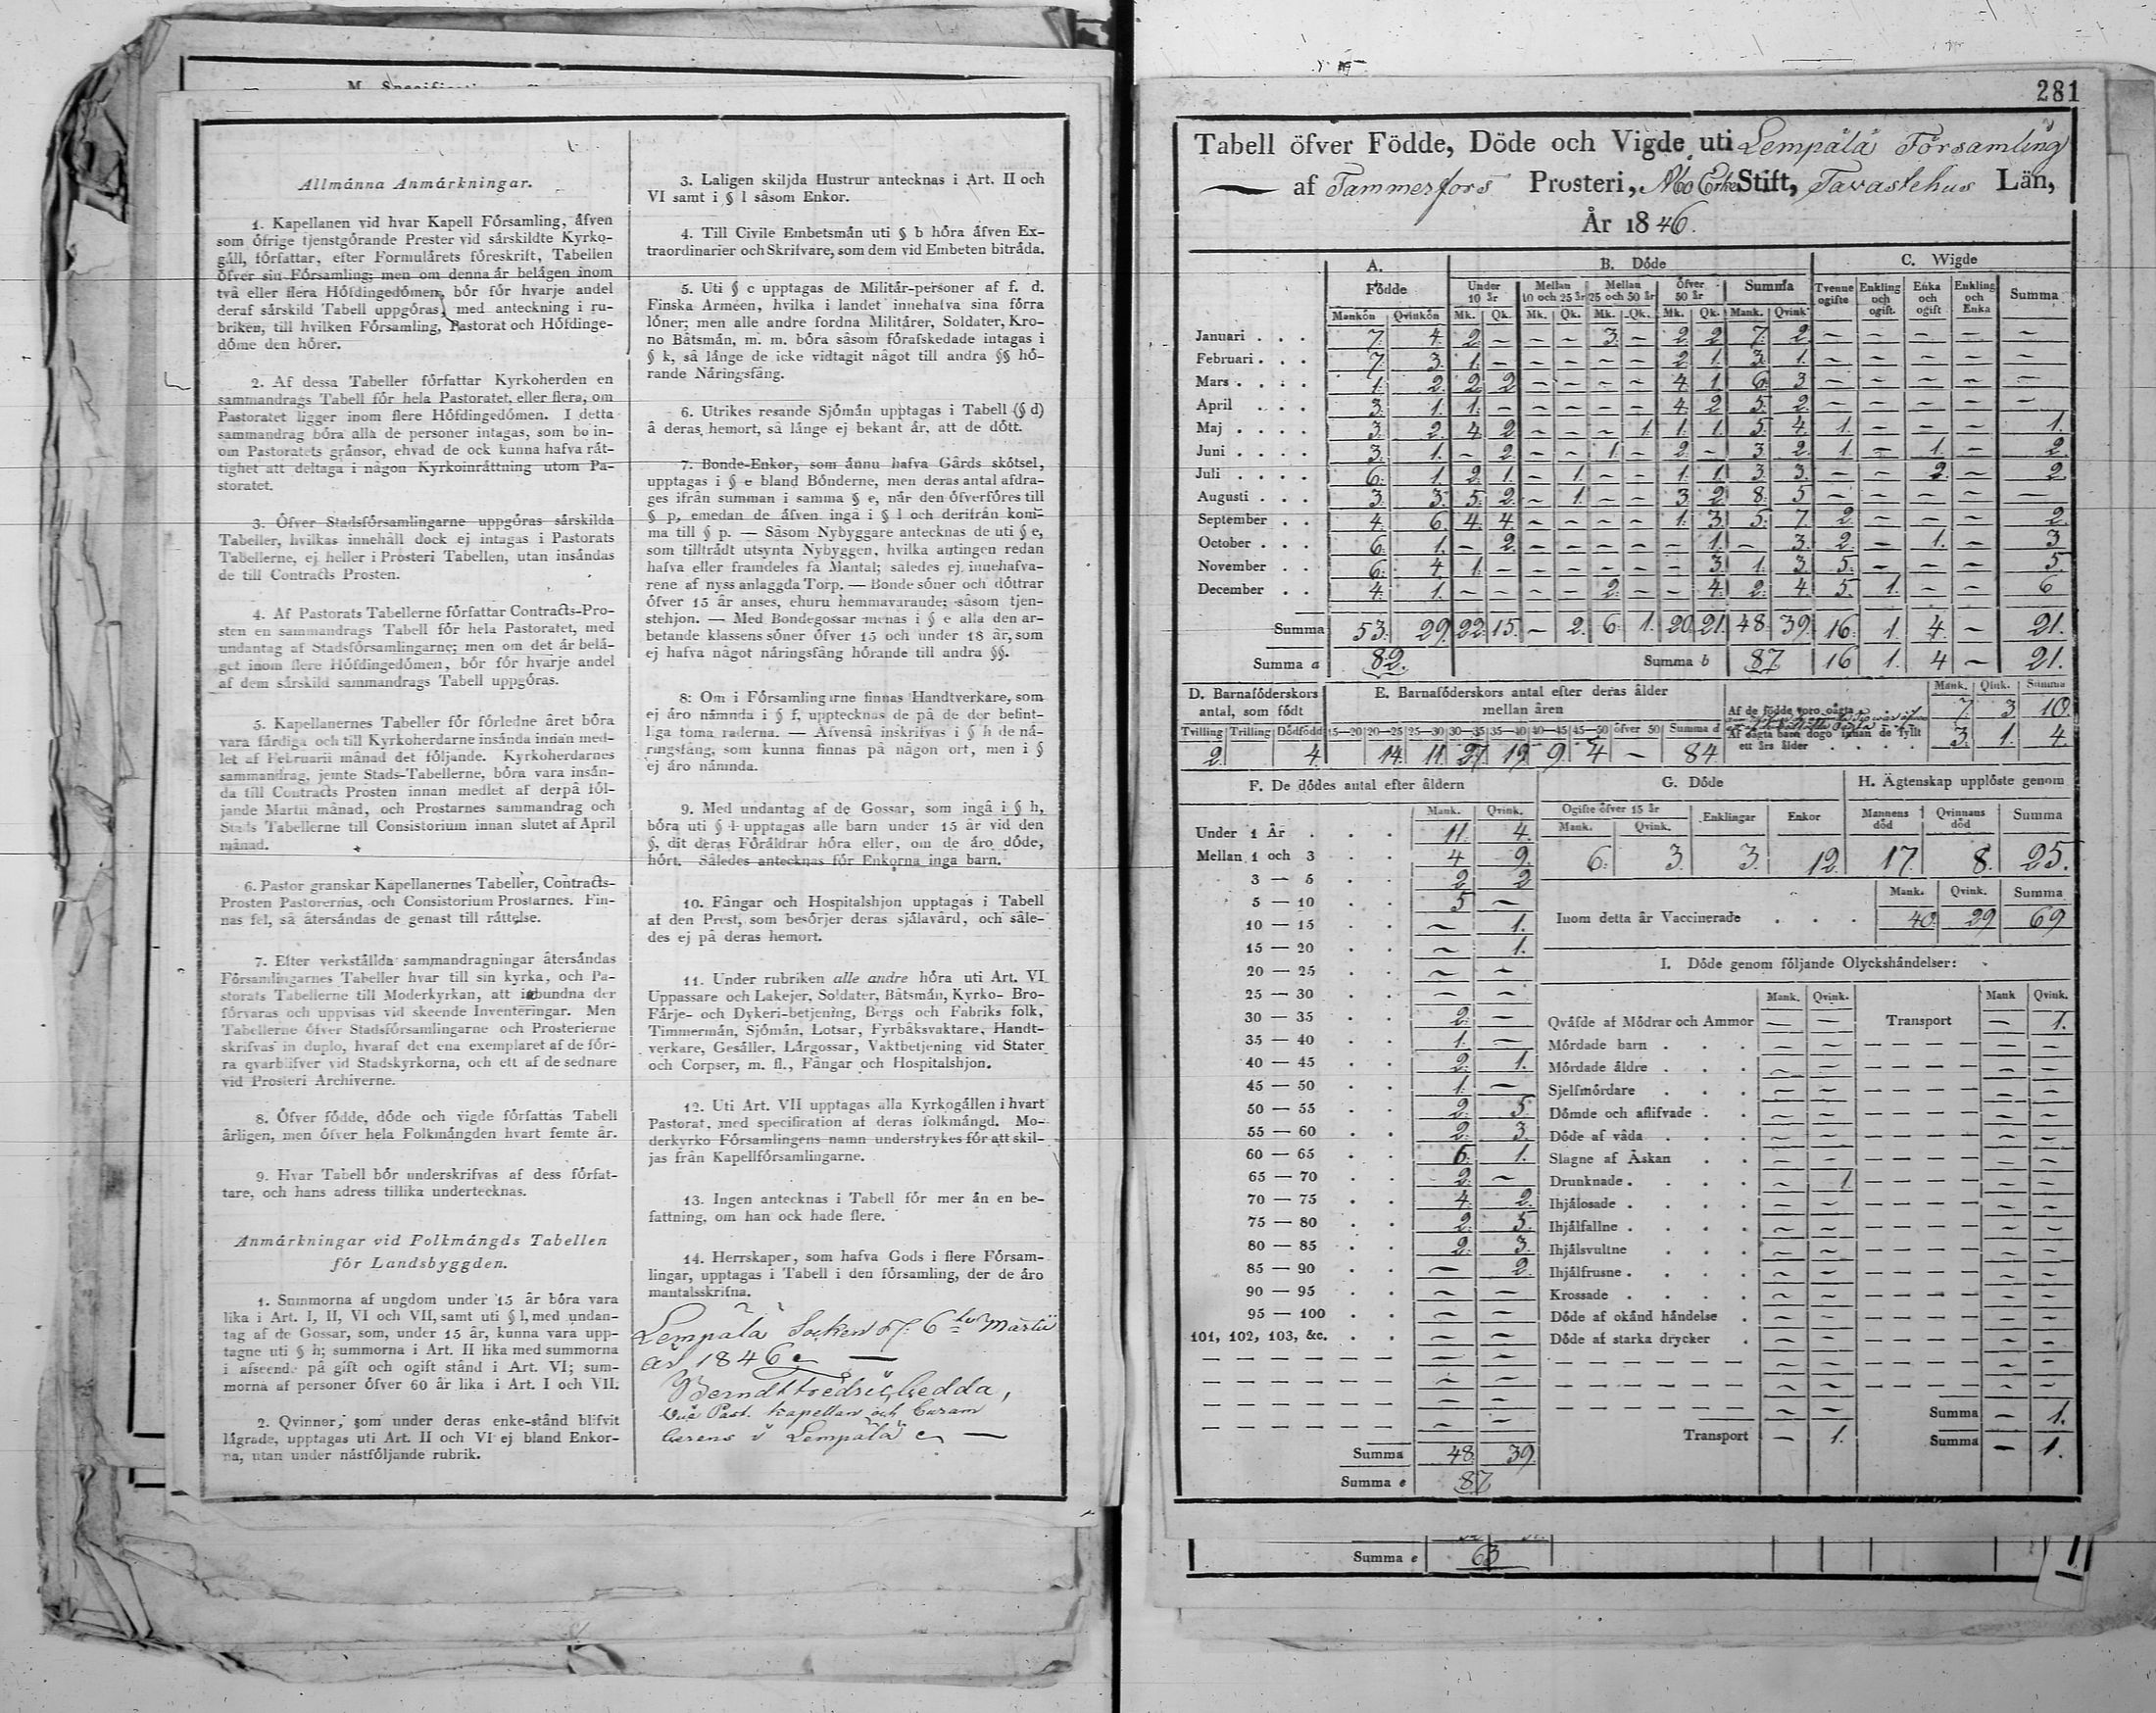 Allmänna Anmärkningar.
1. Kapellanen vid hvar Kapell Församling, äfven
som öfrige tjenstgörande Prester vid särskildte Kyrko-
gäll, författar, efter Formulärets föreskrift, Tabellen
öfver sin Församling; men om denna är belägen inom
två eller flera Höfdingedömen, bör för hvarje andel
deraf särskild Tabell uppgöras, med anteckning i ru-
briken, till hvilken Församling, Pastorat och Höfdinge-
döme den hörer.
2. Af dessa Tabeller författar Kyrkoherden en
sammandrags Tabell för hela Pastoratet, eller flera, om
Pastoratet ligger inom flere Höfdingedömen. I detta
sammandrag böra alla de personer intagas, som bo in-
om Pastoratets gränsor, ehvad de ock kunna hafva rät-
tighet att deltaga i någon Kyrkoinrättning utom Pa-
storatet.
3. Öfver Stadsförsamlingarne uppgöras särskilda
Tabeller, hvilkas innehåll dock ej intagas i Pastorats
Tabellerne, ej heller i Prosteri Tabellen, utan insändas
de till Contracts Prosten.
4. Af Pastorats Tabellerne författar Contracts-Pro-
sten en sammandrags Tabell för hela Pastoratet, med
undantag af Stadsförsamlingarne; men om det är belä-
get inom flere Höfdingedömen, bör för hvarje andel
af dem särskild sammandrags Tabell uppgöras.
5. Kapellanernes Tabeller för förledne året böra
vara färdiga och till Kyrkoherdarne insända innan med-
let af Februarii månad det följande. Kyrkoherdarnes
sammandrag, jemte Stads-Tabellerne, böra vara insän-
da till Contracts Prosten innan medlet af derpå föl-
jande Martii månad, och Prostarnes sammandrag och
Stads Tabellerne till Consistorium innan slutet af April
månad.
6. Pastor granskar Kapellanernes Tabeller, Contracts-
Prosten Pastorernas, och Consistorium Prostarnes. Fin-
nas fel, så återsändas de genast till rättelse.
7. Efter verkställda sammandragningar återsändas
Församlingarnes Tabeller hvar till sin kyrka, och Pa-
storats Tabellerne till Moderkyrkan, att inbundna der
förvaras och uppvisas vid skeende Inventeringar. Men
Tabellerne öfver Stadsförsamlingarne och Prosterierne
skrifvas in duplo, hvaraf det ena exemplaret af de för-
ra qvarblifver vid Stadskyrkorna, och ett af de sednare
vid Prosteri Archiverne.
8. Öfver födde, döde och vigde författas Tabell
årligen, men öfver hela Folkmängden hvart femte år.
9. Hvar Tabell bör underskrifvas af dess förfat-
tare, och hans adress tillika undertecknas.
Anmärkningar vid Folkmängds Tabellen
för Landsbyggden.
1. Summorna af ungdom under 15 år böra vara
lika i Art. I, II, VI och VII, samt uti § l, med undan-
tag af de Gossar, som, under 15 år, kunna vara upp-
tagne uti § h; summorna i Art. II lika med summorna
i afseende på gift och ogift stånd i Art. VI; sum-
morna af personer öfver 60 år lika i Art. I och VII.
2. Qvinnor, som under deras enke-stånd blifvit
lägrade, upptagas uti Art. II och VI ej bland Enkor-
na, utan under nästföljande rubrik.
3. Laligen skiljda Hustrur antecknas i Art. II och
VI samt i § l såsom Enkor.
4. Till Civile Embetsmän uti § b höra äfven Ex-
traordinarier och Skrifvare, som dem vid Embeten biträda.
5. Uti § c upptagas de Militär-personer af f. d.
Finska Arméen, hvilka i landet innehafva sina förra
löner; men alle andre fordna Militärer, Soldater, Kro-
no Båtsmän, m. m. böra såsom förafskedade intagas i
§ k, så länge de icke vidtagit något till andra §§ hö-
rande Näringsfång.
6. Utrikes resande Sjömän upptagas i Tabell (§ d)
å deras hemort, så länge ej bekant är, att de dött.
7. Bonde-Enkor, som ännu hafva Gårds skötsel,
upptagas i § e bland Bönderne, men deras antal afdra-
ges ifrån summan i samma § e, når den öfverföres till
§ p, emedan de äfven ingå i § l och derifrån kom-
ma till § p. — Såsom Nybyggare antecknas de uti § e,
som tillträdt utsynta Nybyggen, hvilka antingen redan
hafva eller framdeles få Mantal; således ej innehafva-
rene af nyss anlaggda Torp. — Bonde söner och döttrar
öfver 15 år anses, ehuru hemmavarande, såsom tjen-
stehjon. — Med Bondegossar menas i § e alla den ar-
betande klassens söner öfver 15 och under 18 år, som
ej hafva något näringsfång hörande till andra §§.
8. Om i Församlingarne finnas Handtverkare, som
ej äro nämnda i § f, upptecknas de på de der befint-
liga toma raderna. — Äfvenså inskrifvas i § h de nä-
ringsfång, som kunna finnas på någon ort, men i §
ej äro nämnda.
9. Med undantag af de Gossar, som ingå i § h,
böra uti § l upptagas alle barn under 15 år vid den
§, dit deras Föräldrar höra eller, om de äro döde,
hört. Således antecknas för Enkorna inga barn.
10. Fångar och Hospitalshjon upptagas i Tabell
af den Prest, som besörjer deras själavård, och såle-
des ej på deras hemort.
11. Under rubriken alle andre höra uti Art. VI
Uppassare och Lakejer, Soldater, Båtsmän, Kyrko- Bro-
Färje- och Dykeri-betjening, Bergs och Fabriks folk,
Timmermän, Sjömän, Lotsar, Fyrbåksvaktare, Handt-
verkare, Gesäller, Lärgossar, Vaktbetjening vid Stater
och Corpser, m. fl., Fångar och Hospitalshjon.
12. Uti Art. VII upptagas alla Kyrkogällen i hvart
Pastorat, med specification af deras folkmängd. Mo-
derkyrko Församlingens namn understrykes för att skil-
jas från Kapellförsamlingarne.
13. Ingen antecknas i Tabell för mer än en be-
fattning, om han ock hade flere.
14. Herrskaper, som hafva Gods i flere Försam-
lingar, upptagas i Tabell i den församling, der de äro
mantalsskrifna.
Lempälä Socken d. 6 Martii
år 1846
Vice Past. Kapellan och Curam
Gerens i Lempälä
281
Tabell öfver Födde, Döde och Vigde uti Lempälä Församling
af Tammerfors Prosteri, Åbo Erke Stift, Tavastehus Län,
År 1846.
A. Födde B. Döde C. Wigde
Under 10 år Mellan 10 och 25 år Mellan 25 och 50 år Öfver 50 år Summa Tvenne ogifte Enkling och ogift. Enka och ogift Enkling och Enka Summa
Mankön Qvinkön Mk. Qk. Mk. Qk. Mk. Qk. Mk. Qk. Mank. Qvink
Januari 7. 4. 2 – – – 3 – 2 2 7. 2 – – – – –
Februari 7. 3. 1. – – – – – 2 1. 3. 1. – – – – –
Mars 1. 2. 2 2 – – – – 4 1. 6. 3 – – – – –
April 3. 1. 1. – – – – – 4. 2 5. 2. – – – – –
Maj 3. 2. 4. 2 – – – 1. 1. 1. 5. 4. 1. – – – 1.
Juni 3. 1. – 2. – – 1. – 2. – 3. 2. 1. – 1. – 2.
Juli 6. 1. 2. 1. – 1. – – 1. 1. 3. 3. – – 2. – 2.
Augusti 3. 3. 5. 2. – 1. – – 3 2 8. 5 – – – – –
September 4. 6. 4. 4. – – – – 1. 3. 5. 7. 2. – – – 2.
October 6. 1. – 2. – – – – – 1. – 3. 2. – 1. – 3
November 6. 4. 1. – – – – – – 3. 1. 3. 5. – – – 5.
December 4. 1. – – – – 2. – – 4. 2. 4. 5. 1. – – 6
Summa 53. 29. 22. 15. – 2. 6. 1. 20. 21. 48. 39. 16. 1. 4. – 21.
Summa a 82. Summa b 87. 16 1. 4 – 21.
D. Barnaföderskors antal, som födt E. Barnaföderskors antal efter deras ålder mellan åren
Mank. Qink. Summa
Af de födde voro oägta 7. 3 10.
Af oägta barn dogo innan de fyllt ett års ålder 3. 1. 4.
Tvilling Trilling Dödfödd 15—20 20—25 25—30 30—35 35—40 40—45 45—50 öfver 50 Summa d
2. 4. 14. 11. 27 19 9. 4 – 84
F. De dödes antal efter åldern
Mank. Qvink.
Under 1 År 11. 4.
Mellan 1 och 3 4 9.
3 — 5 2 2
5 — 10 5 –
10 — 15 – 1.
15 — 20 – 1.
20 — 25 – –
25 — 30 – –
30 — 35 2. –
35 — 40 1. –
40 — 45 2. 1.
45 — 50 1. –
50 — 55 2. 5.
55 — 60 2. 3.
60 — 65 6. 1.
65 — 70 2. –
70 — 75 4. 2.
75 — 80 2. 5.
80 — 85 2. 3.
85 — 90 – 2.
90 — 95 – –
95 — 100 – –
101, 102, 103, &c. – –
Summa 48. 39.
Summa e 87.
G. Döde H. Ägtenskap upplöste genom
Ogifte öfver 15 år Enklingar Enkor Mannens död Qvinnans död Summa
Mank. Qvink.
6. 3. 3. 12. 17. 8. 25.
Mank. Qvink. Summa
Inom detta år Vaccinerade 40. 29 69
I. Döde genom följande Olyckshändelser:
Mank. Qvink. Mank Qvink.
Qväfde af Mödrar och Ammor – – Transport – 1.
Mördade barn – –
Mördade äldre – –
Sjelfmördare – –
Dömde och aflifvade – –
Döde af våda – –
Slagne af Åskan – –
Drunknade – 1
Ihjälosade – –
Ihjälfallne – –
Ihjälsvultne – –
Ihjälfrusne – –
Krossade – –
Döde af okänd händelse – –
Döde af starka drycker – –
Summa – 1.
Transport – 1. Summa – 1.
Summa e 63